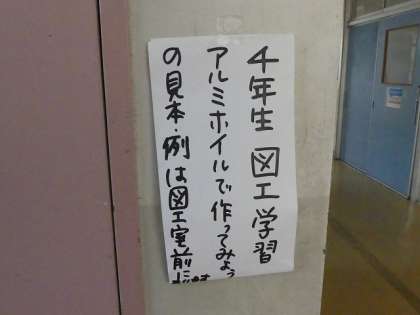 4年生 図工学習
アルミホイルで作ってみよう
の見本・例は図工室前に